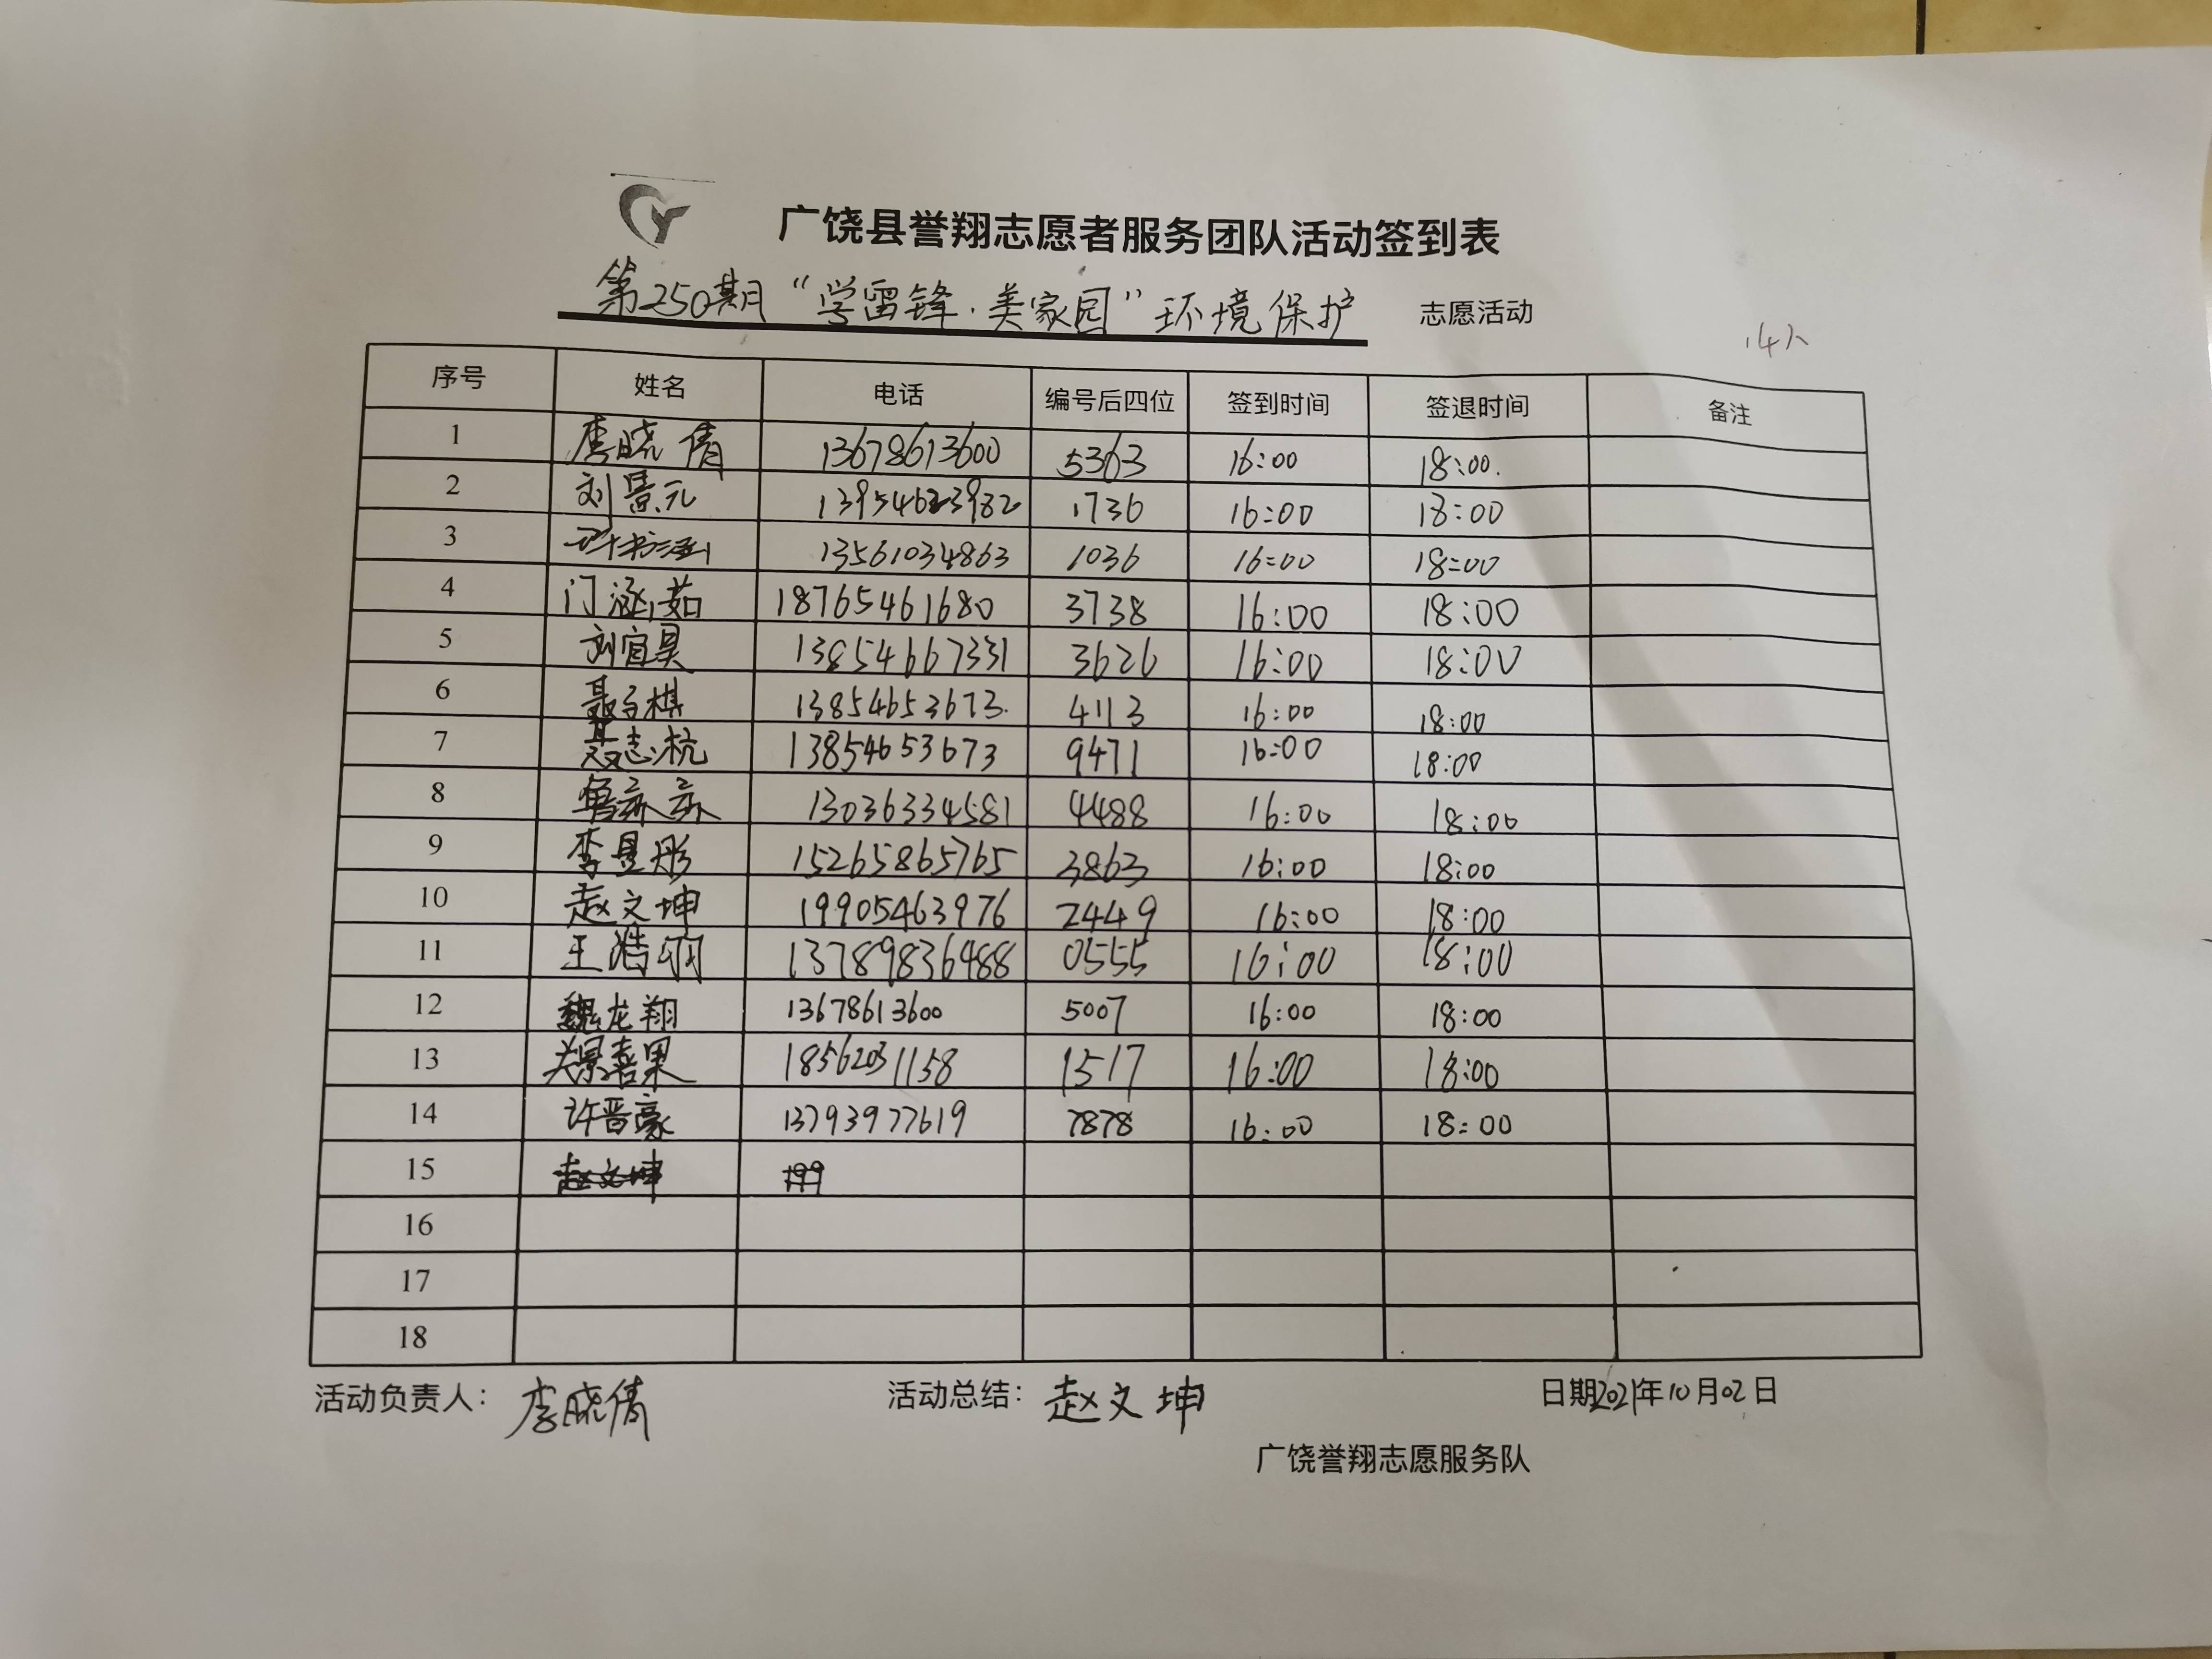 广饶县誉翔志愿者服务团队活动签到表
第250期“学雷锋·美家园”环境保护 志愿活动
14人
序号 姓名 电话 编号后四位 签到时间 签退时间 备注
1 李晓倩 13678613600 5363 16:00 18:00.
2 刘景元 13954623982 1736 16:00 18:00
3 13561034863 1036 16:00 18:00
4 门涵茹 18765461680 3738 16:00 18:00
5 刘宜昊 13854667331 3626 16:00 18:00
6 聂子棋 13854653673. 4113 16:00 18:00
7 聂志杭 13854653673 9471 16:00 18:00
8 13036334581 4488 16:00 18:00
9 李昱彤 15265865765 3863 16:00 18:00
10 赵文坤 19905463976 2449 16:00 18:00
11 王浩羽 13789836488 0555 16:00 18:00
12 魏龙翔 13678613600 5007 16:00 18:00
13 18562031158 1517 16:00 18:00
14 许晋豪 13793977619 7878 16:00 18:00
15 赵文坤 199
16
17
18
活动负责人: 李晓倩 活动总结: 赵文坤 日期2021年10月02日
广饶誉翔志愿服务队